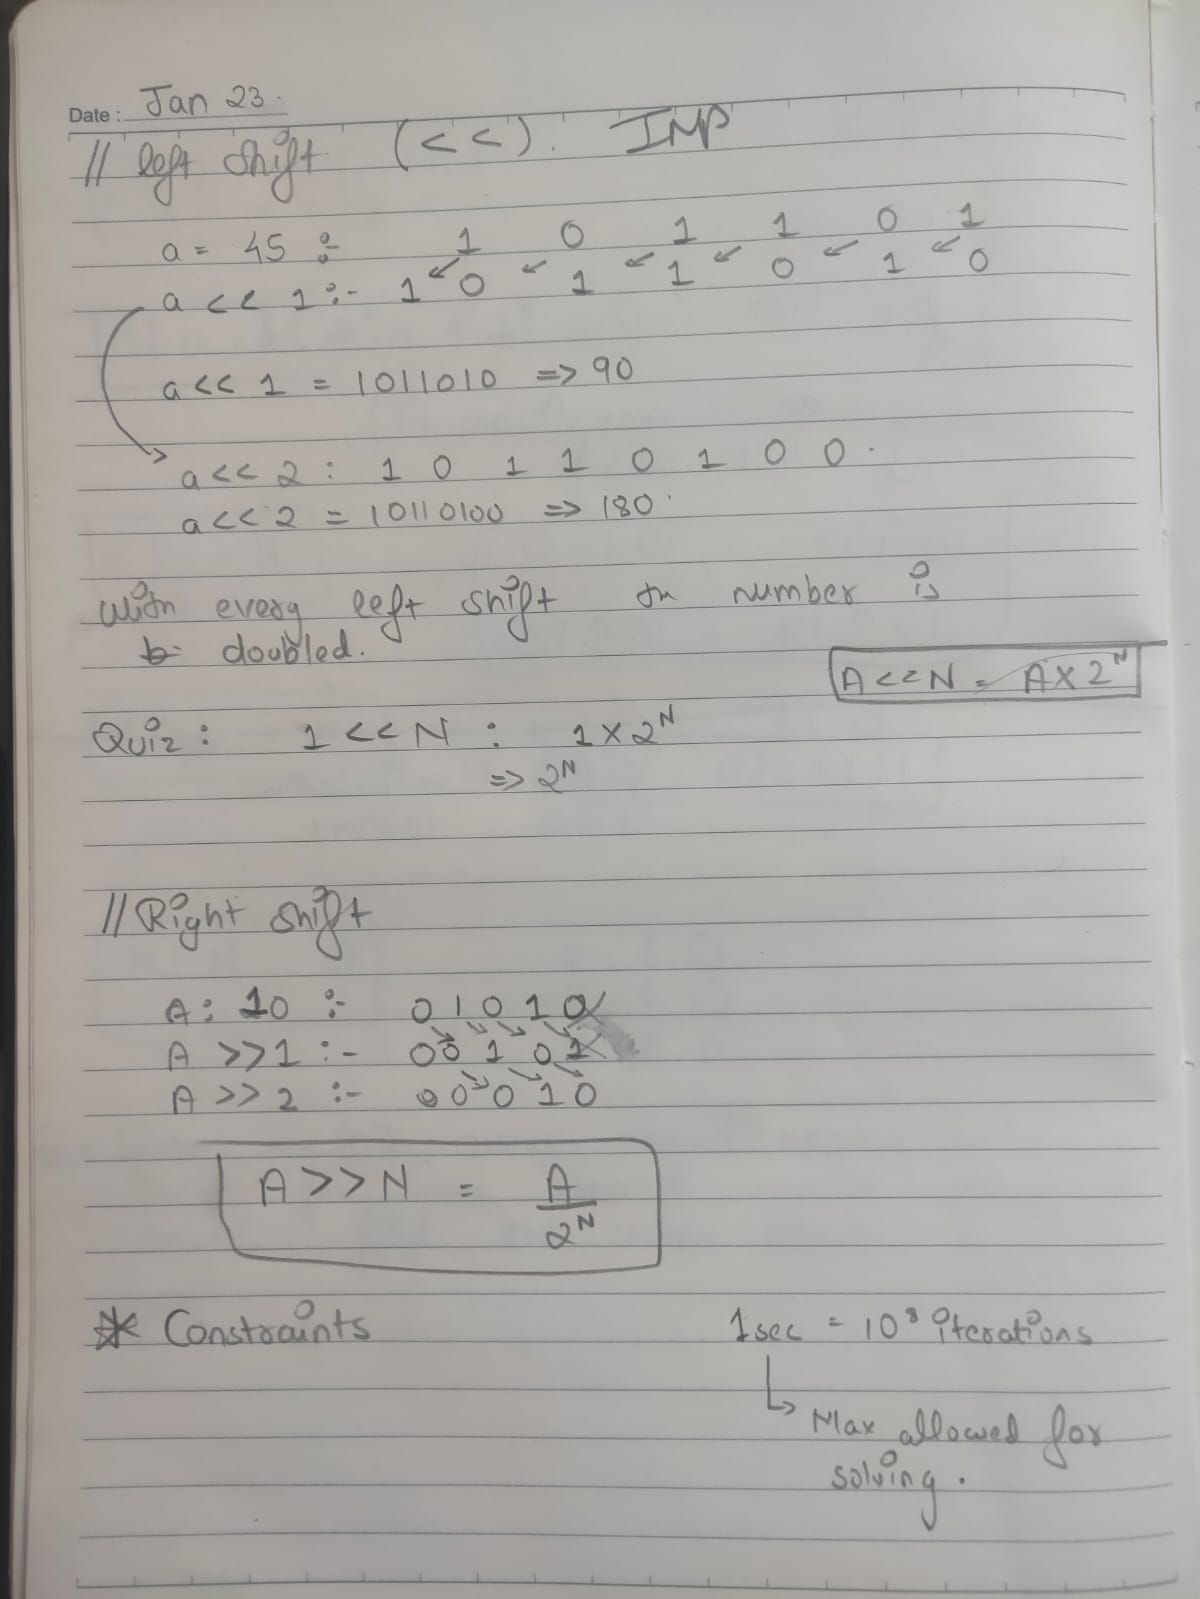 Date : Jan 23.
// left shift (<<). IMP
a = 45 :- 1 0 1 1 0 1
a << 1 :- 1 0 1 1 0 1 0
a << 1 = 1011010 => 90
a << 2 : 1 0 1 1 0 1 0 0 .
a << 2 = 10110100 => 180
With every left shift the number is
doubled.
A << N = A x 2^N
Quiz : 1 << N : 1 x 2^N
=> 2^N
// Right shift
A : 10 :- 0 1 0 1 0
A >> 1 :- 0 0 1 0 1
A >> 2 :- 0 0 0 1 0
A >> N = A / 2^N
* Constraints
1 sec = 10^8 iterations
Max allowed for
solving .